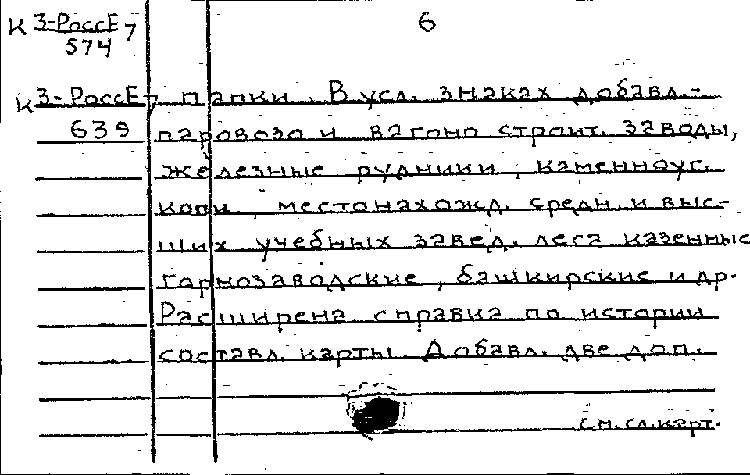 К 3-РоссЕ 7
574
6
К 3-РоссЕ 7 папки. В усл. знаках добавл.-
639 паровозо и вагоно строит. заводы,
железные рудники, каменноуг.
копи, местонахожд. средн. и выс-
ших учебных завед. леса казенные
горнозаводские, башкирские и др.
Расширена справка по истории
составл. карты. Добавл. две доп.
см. сл. карт.